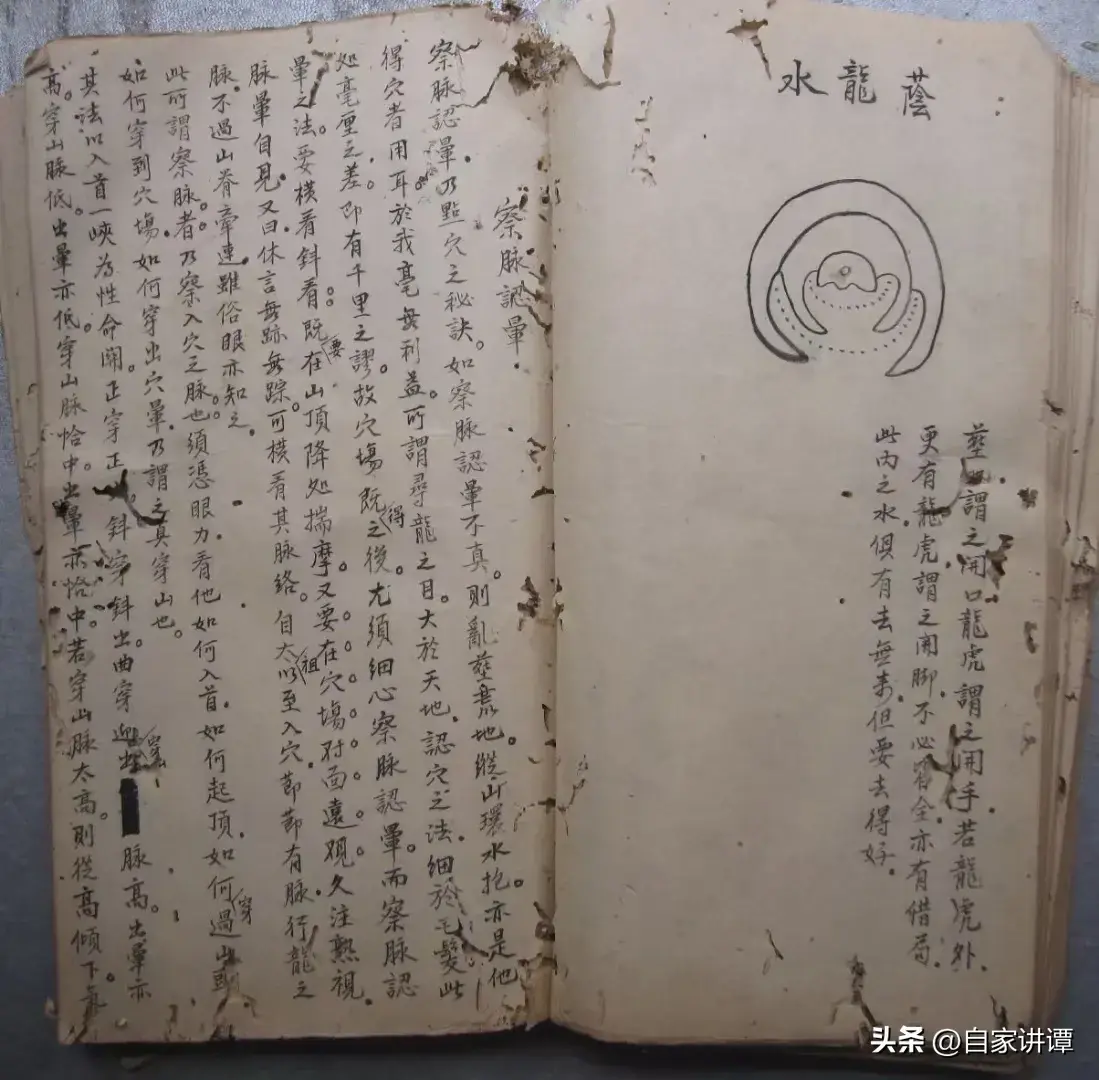 蔭龍水
葬口謂之開口龍虎謂之開手若龍虎外.
更有龍虎謂之開脚.不必全亦有借局.
此内之水.俱有去無来.但要去得好.
察脉認暈.
察脉認暈.乃點穴之秘訣。如察脉認暈不真。則亂葬地。縱山環水抱。亦是他
得穴者用耳於我毫無利益。所謂尋龍之目.大於天地.認穴之法.細於毛髮.此
処毫厘之差。即有千里之謬。故穴塲既得之後。尤須細心察脉認暈。而察脉認
暈之法。要橫看斜看。既要在山頂降処揣摩。又要在穴塲对面遠观。久注熟視.
脉暈自見.又曰休言無跡無踪.可横看其脉络。自太祖以至入穴.莭莭有脉.行龍之
脉.不過山脊牽連.雖俗眼亦知之.
此所謂察脉者。乃察入穴之脉也。須憑眼力.看他如何入首.如何起頂.如何穿過山頭
如何穿到穴塲.如何穿出穴暈.乃謂之真穿山也。
其法以入首一峽為性命関。正穿正斜穿斜出。曲穿脉高。出暈亦
高。穿山脉低。出暈亦低。穿山脉恰中。出暈亦恰中。若穿山脉太高。則從高傾下。氣
头条 @自家讲谭